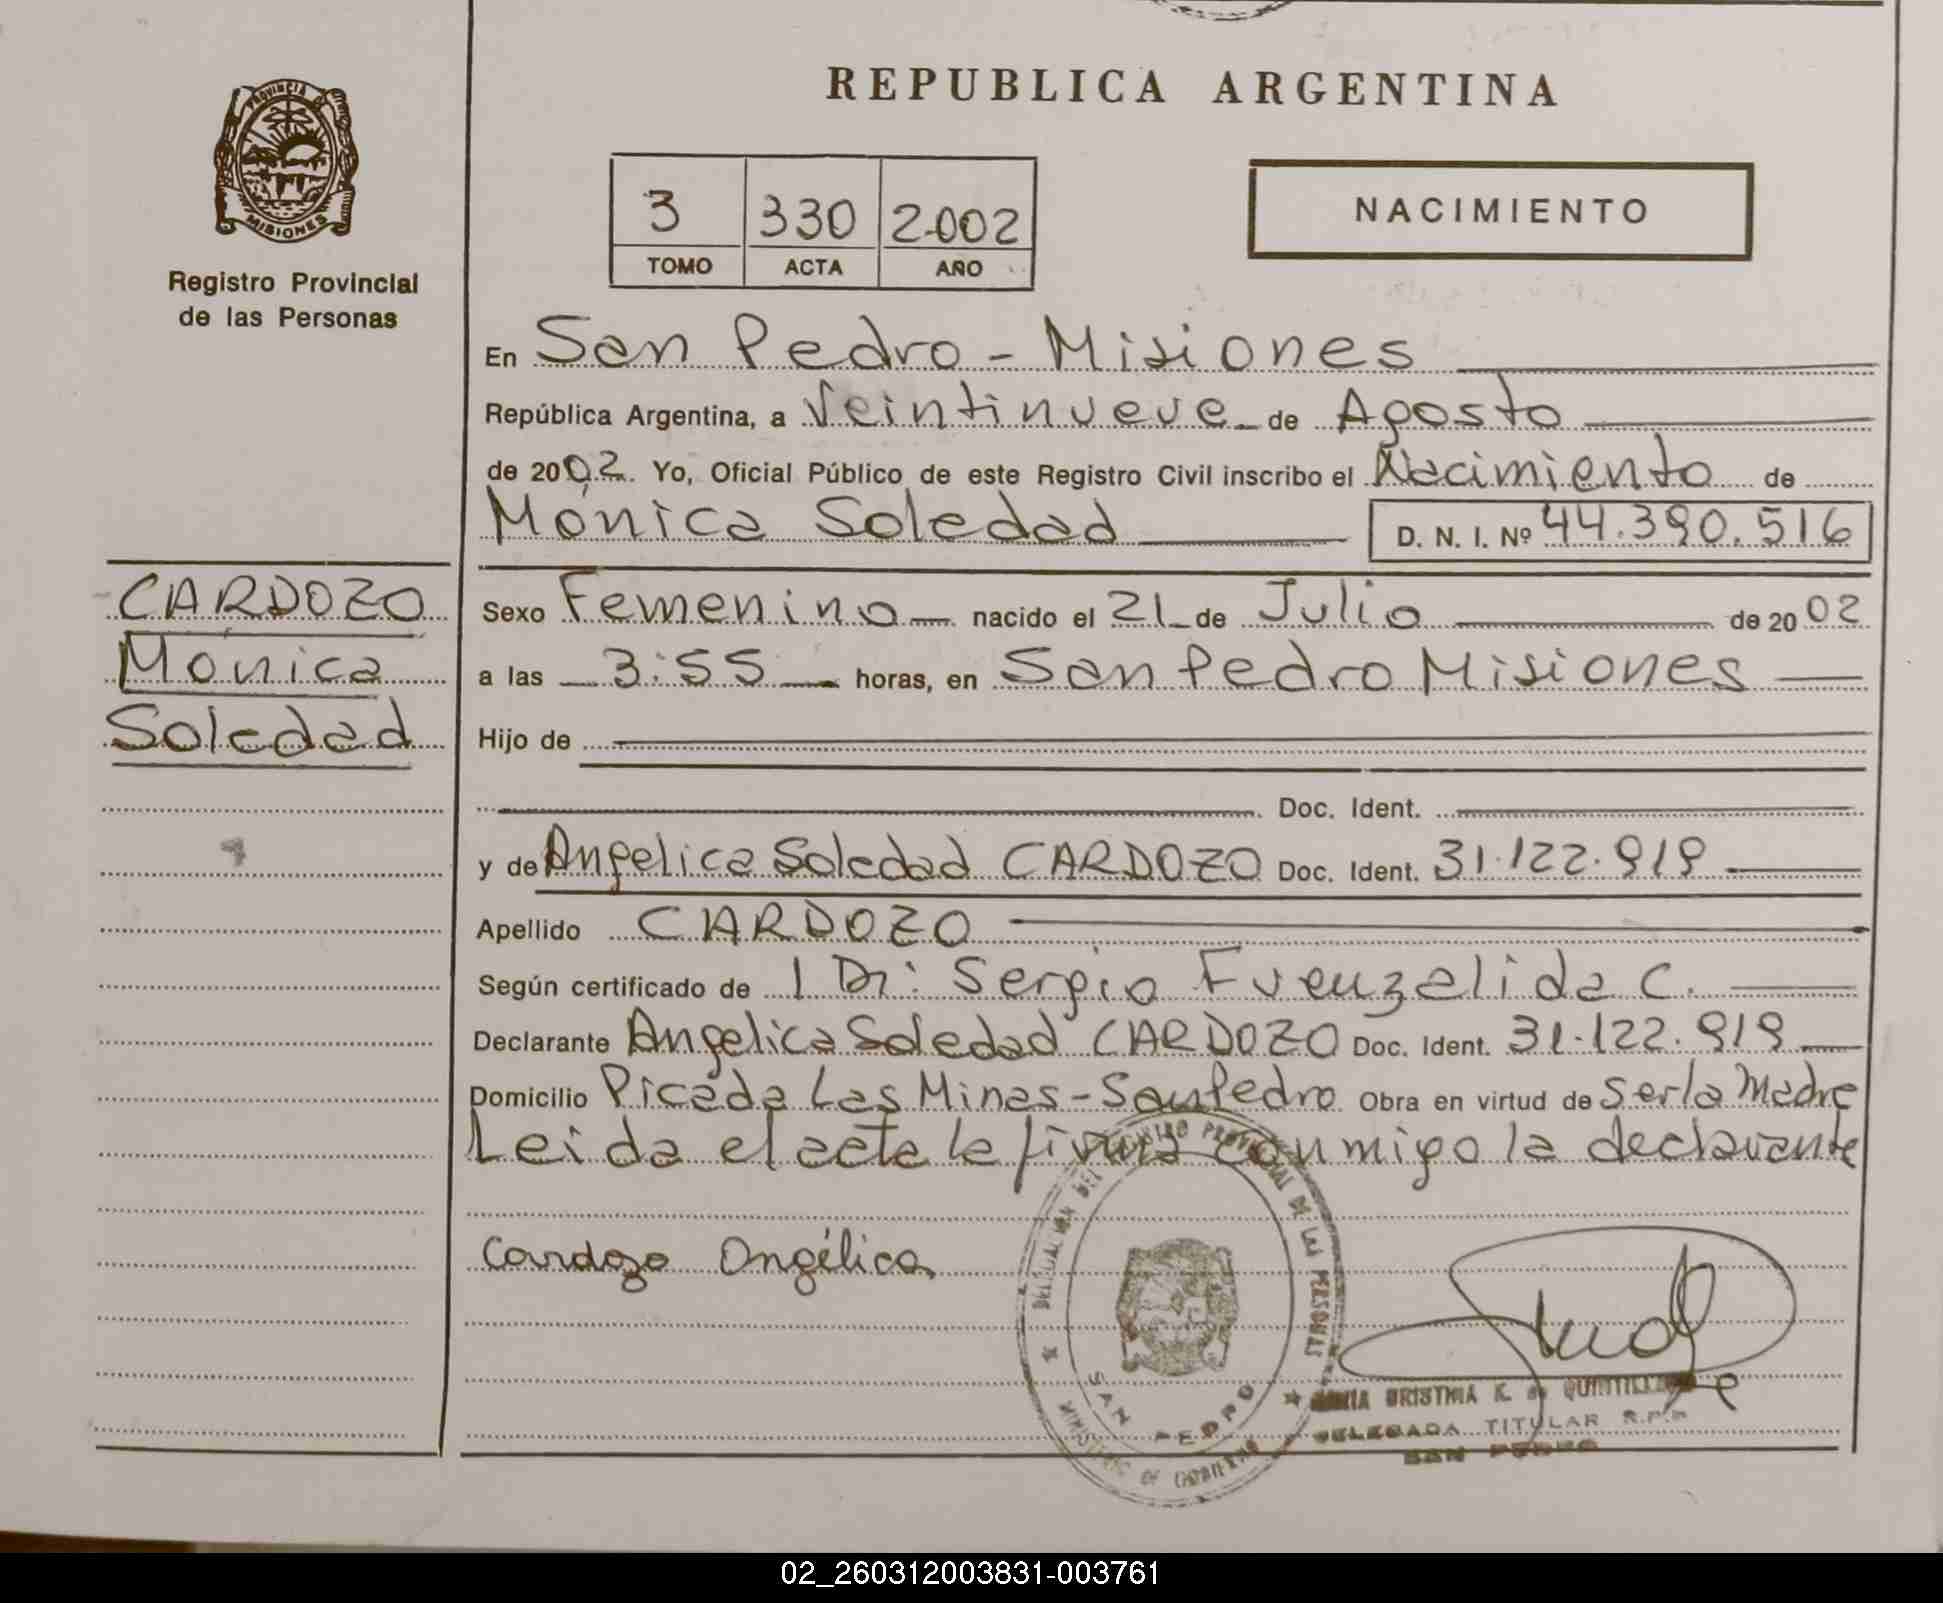 REPUBLICA ARGENTINA
PROVINCIA DE
MISIONES
Registro Provincial
de las Personas
3 330 2.002
TOMO ACTA AÑO
NACIMIENTO
En San Pedro - Misiones
República Argentina, a Veintinueve de Agosto
de 2002. Yo, Oficial Público de este Registro Civil inscribo el Nacimiento de
Mónica Soledad D. N. I. Nº 44.390.516
CARDOZO
Mónica
Soledad
Sexo Femenino nacido el 21 de Julio de 2002
a las 3:55 horas, en San Pedro Misiones
Hijo de
Doc. Ident.
y de Angelica Soledad CARDOZO Doc. Ident. 31.122.919
Apellido CARDOZO
Según certificado de 1 Dr: Sergio Fuenzalida C.
Declarante Angelica Soledad CARDOZO Doc. Ident. 31.122.919
Domicilio Picada Las Minas - San Pedro Obra en virtud de ser la Madre
Leida el acta la firma conmigo la declarante
Cardozo Angélica
DELEGACION DEL REGISTRO PROVINCIAL DE LAS PERSONAS
SAN PEDRO
MINISTERIO DE GOBIERNO
K. de
DELEGADA TITULAR R.P.P.
SAN PEDRO
02_260312003831-003761